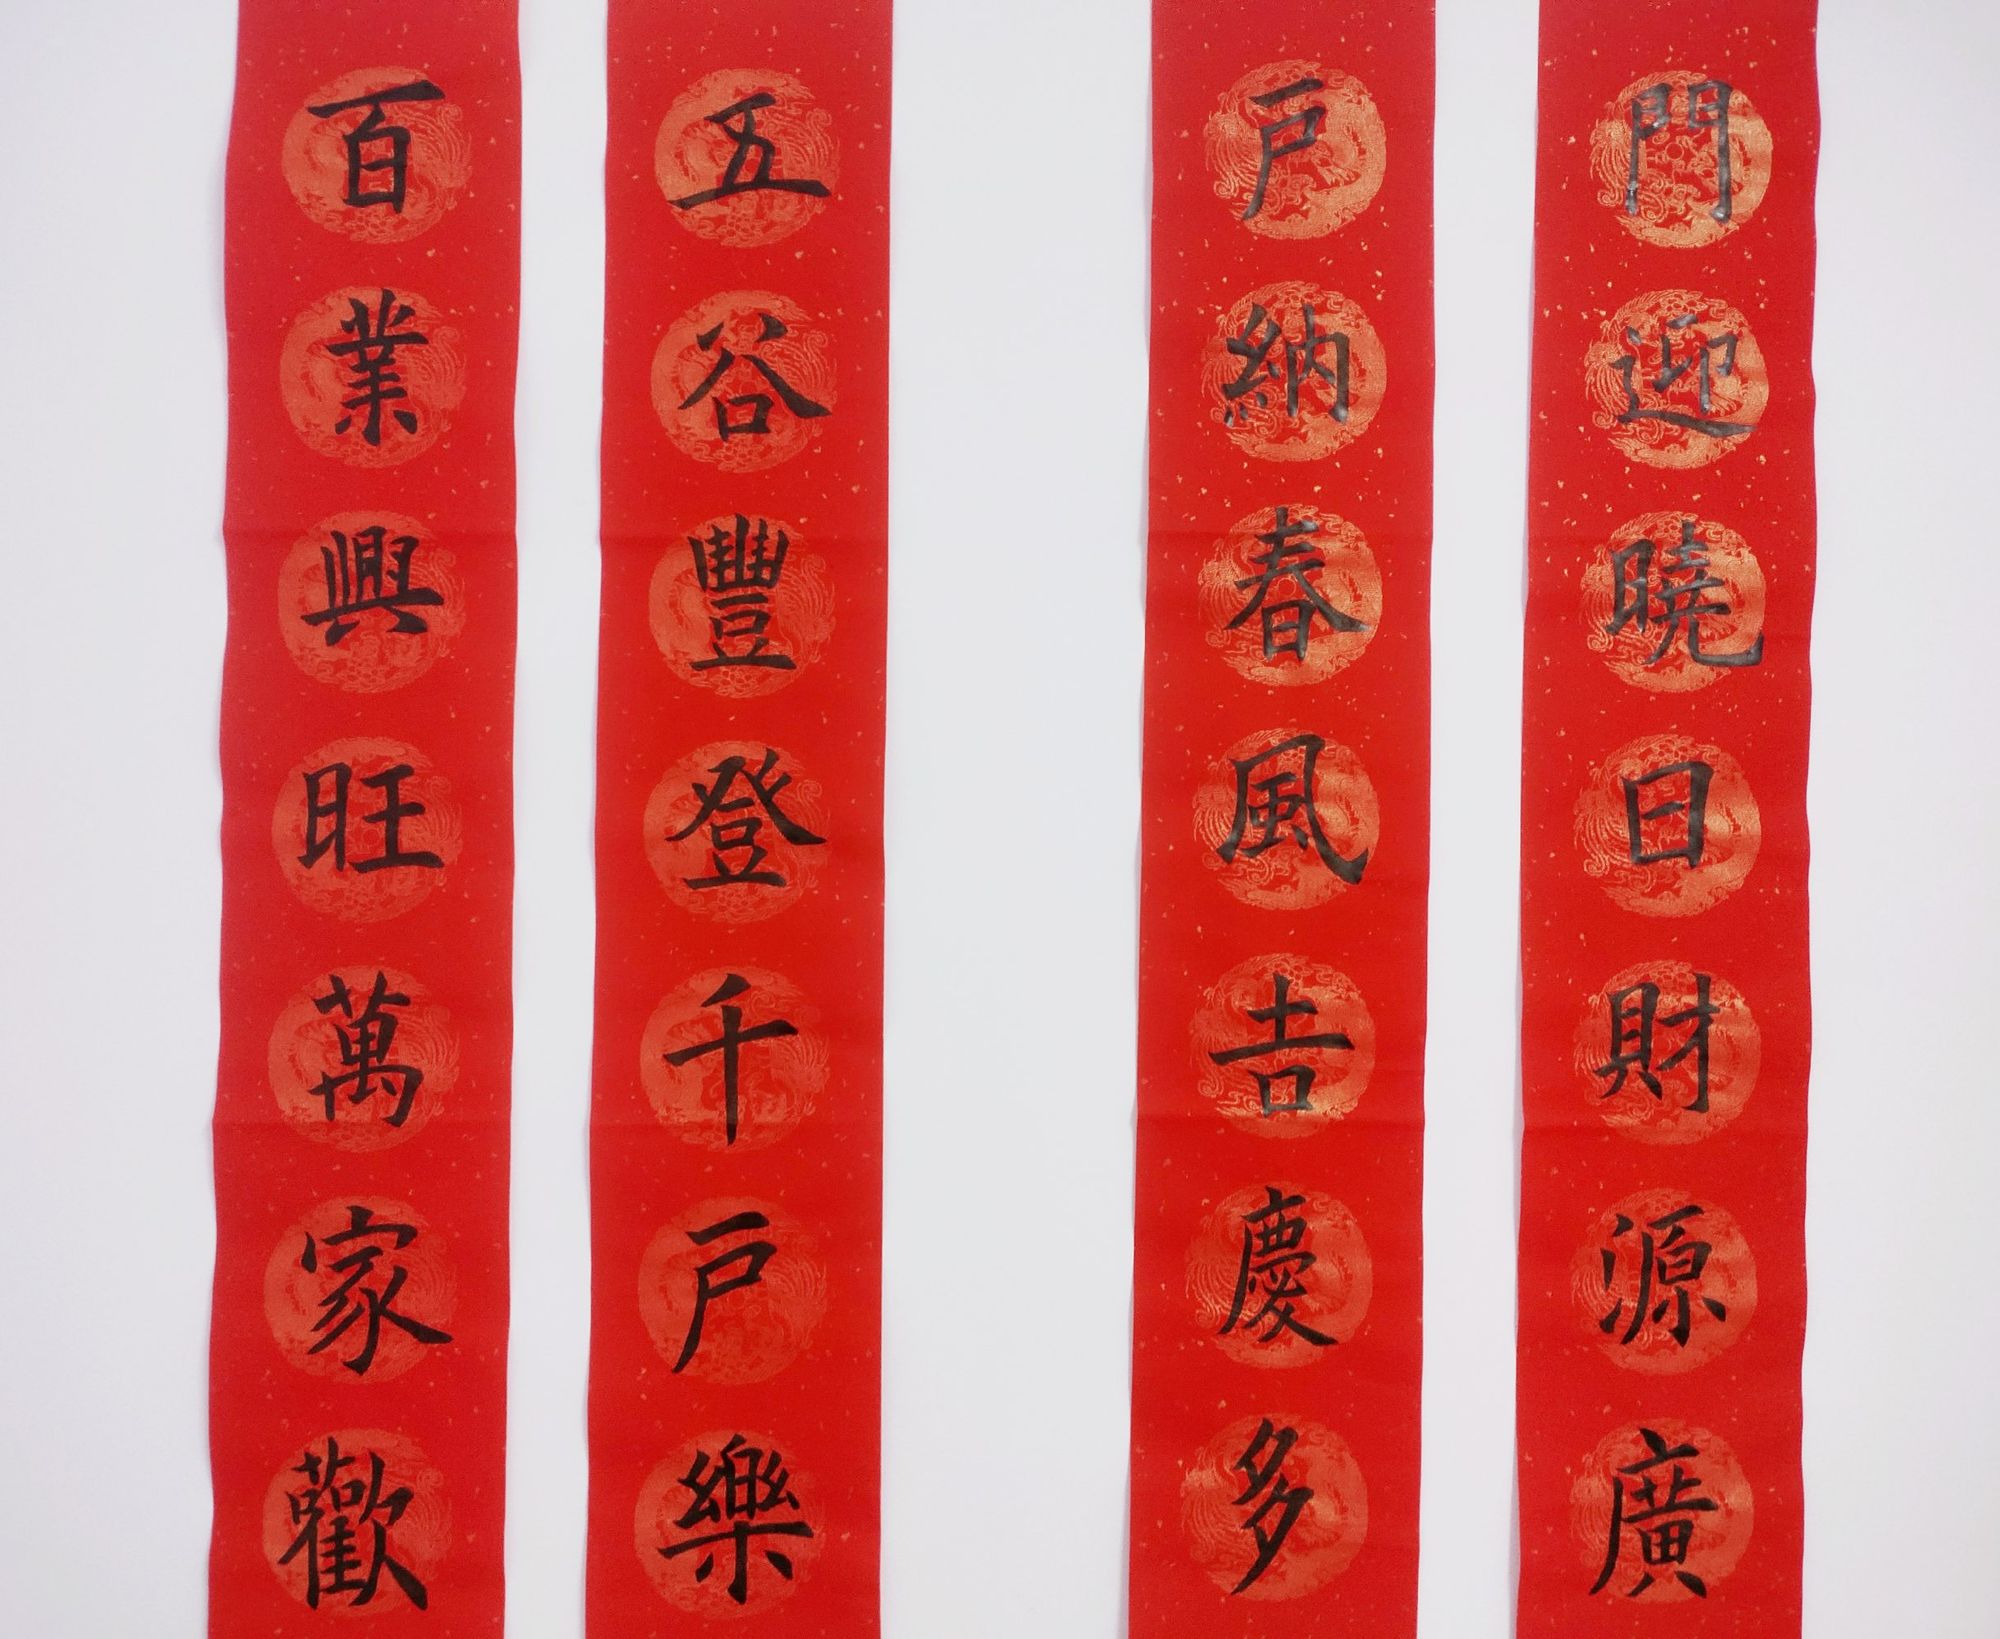 門迎曉日財源廣
戶納春風吉慶多
五谷豐登千戶樂
百業興旺萬家歡